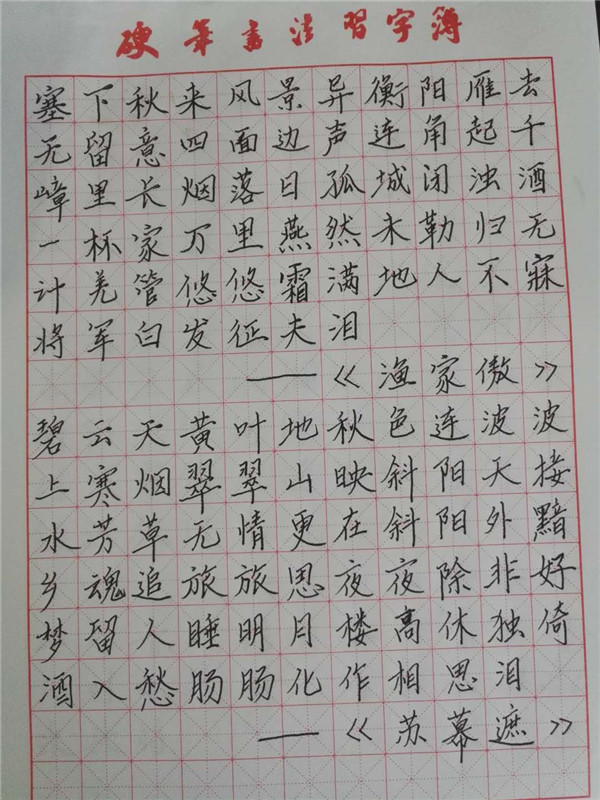 硬笔书法习字簿
塞下秋来风景异衡阳雁去
无留意四面边声连角起千
嶂里长烟落日孤城闭浊酒
一杯家万里燕然未勒归无
计羌管悠悠霜满地人不寐
将军白发征夫泪
——《渔家傲》
碧云天黄叶地秋色连波波
上寒烟翠翠山映斜阳天接
水芳草无情更在斜阳外黯
乡魂追旅旅思夜夜除非好
梦留人睡明月楼高休独倚
酒入愁肠肠化作相思泪
——《苏幕遮》